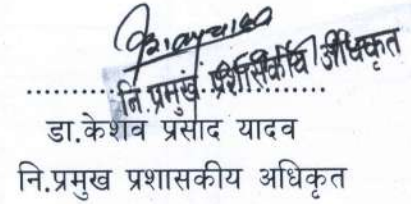 नि.प्रमुख प्रशासकीय अधिकृत
..............................
डा.केशव प्रसाद यादव
नि.प्रमुख प्रशासकीय अधिकृत